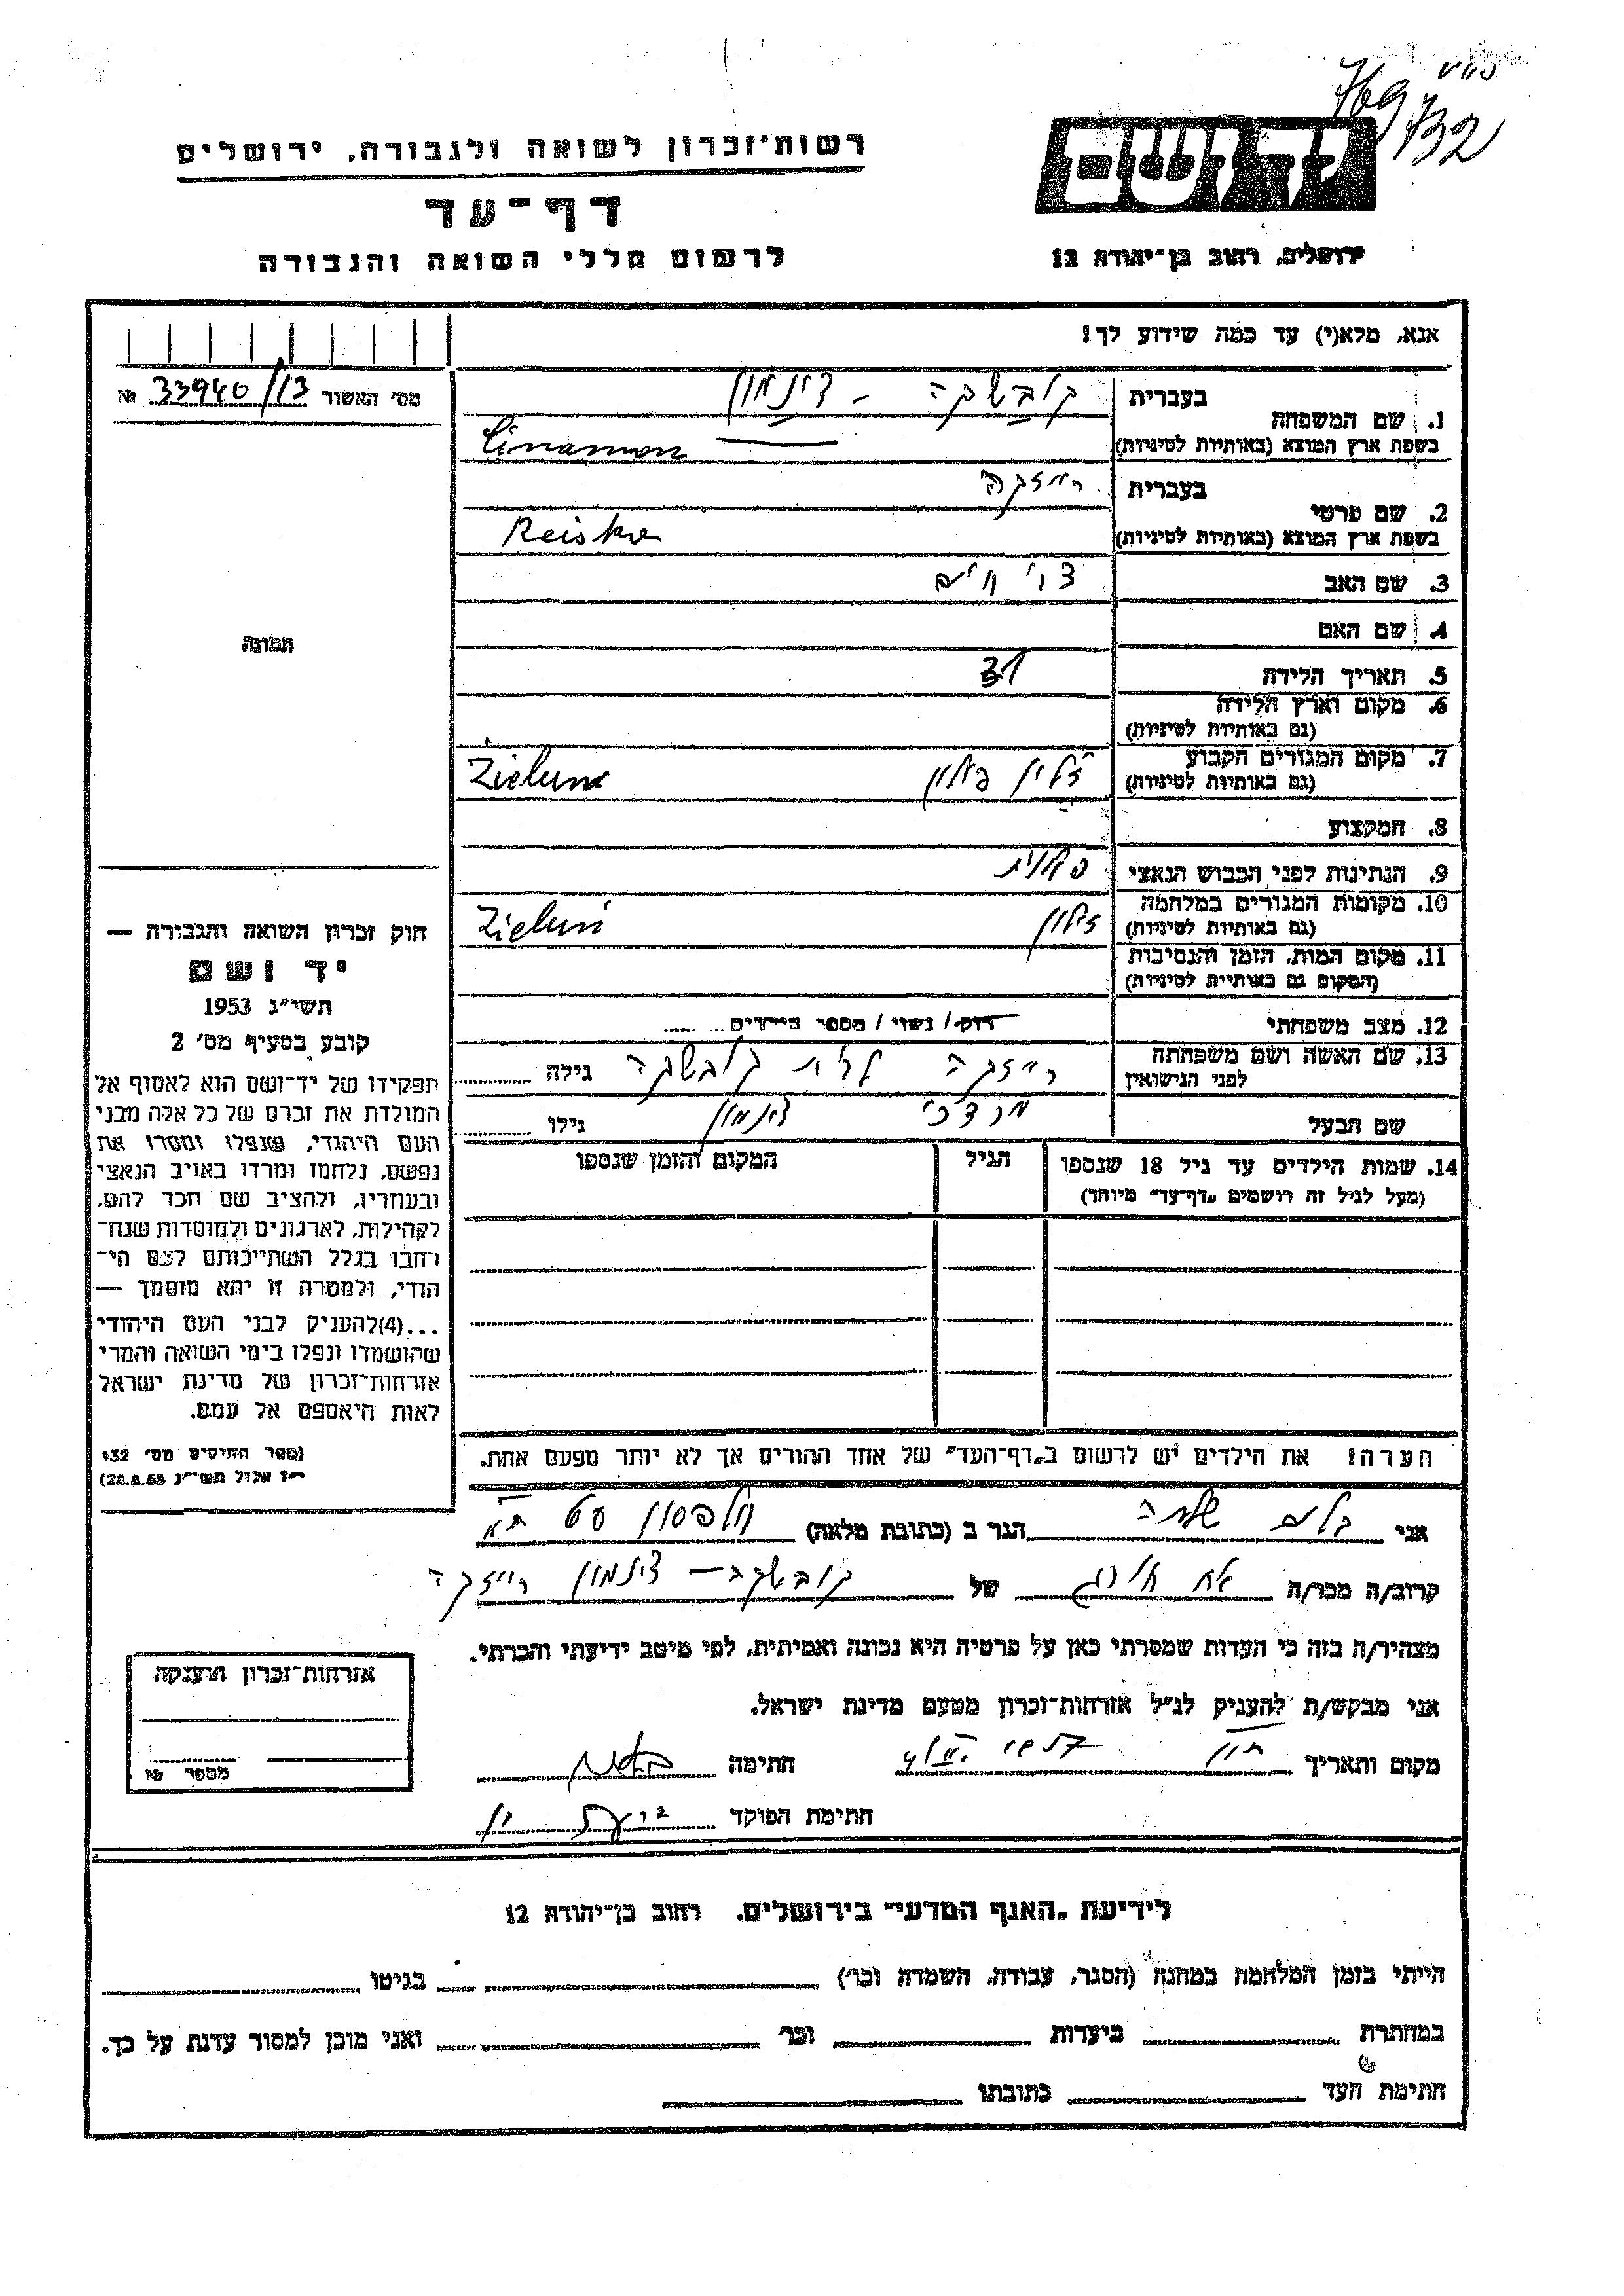 769
732
רשות־זכרון לשואה ולגבורה, ירושלים
יד ושם
דף־עד
לרשום חללי השואה והגבורה
ירושלים, רחוב בן־יהודה 12
אנא, מלא(י) עד כמה שידוע לך!
מס׳ האשור 33940/13 №
1. שם המשפחה
בעברית
קובשקה – צינמון
בשפת ארץ המוצא (באותיות לטיניות)
Cinamon
2. שם פרטי
בעברית
רייזקה
בשפת ארץ המוצא (באותיות לטיניות)
Reiska
3. שם האב
4. שם האם
5. תאריך הלידה
31
6. מקום וארץ הלידה
(גם באותיות לטיניות)
7. מקום המגורים הקבוע
(גם באותיות לטיניות)
פולין Zielun
8. המקצוע
9. הנתינות לפני הכבוש הנאצי
פולנית
10. מקומות המגורים במלחמה
(גם באותיות לטיניות)
Zieluń
11. מקום המות, הזמן והנסיבות
(המקום גם באותיית לטיניות)
12. מצב משפחתי
רוק / נשוי / מספר הילדים
13. שם האשה ושם משפחתה
לפני הנישואין
רייזקה לבית קובשקה גילה
שם הבעל
מרדכי צינמון גילו
14. שמות הילדים עד גיל 18 שנספו
(מעל לגיל זה רושמים „דף־עד״ מיוחד)
הגיל
המקום והזמן שנספו
הערה! את הילדים יש לרשום ב„דף־העד״ של אחד ההורים אך לא יותר מפעם אחת.
תמונה
חוק זכרון השואה והגבורה —
יד ושם
תשי״ג 1953
קובע בסעיף מס׳ 2
תפקידו של יד־ושם הוא לאסוף אל
המולדת את זכרם של כל אלה מבני
העם היהודי, שנפלו ומסרו את
נפשם, נלחמו ומרדו באויב הנאצי
ובעוזריו, ולהציב שם וזכר להם,
לקהילות, לארגונים ולמוסדות שנח־
רחבו בגלל השתייכותם לעם הי־
הודי, ולמטרה זו יהא מוסמך —
...(4)להעניק לבני העם היהודי
שהושמדו ונפלו בימי השואה והמרי
אזרחות־זכרון של מדינת ישראל
לאות היאספם אל עמם.
(ספר החוקים מס׳ 132
י״ז אלול תשי״ג 28.8.53)
אני בלום הגר ב (כתובת מלאה)
קרוב/ה מכר/ה של קובשקה – צינמון רייזקה
מצהיר/ה בזה כי העדות שמסרתי כאן על פרטיה היא נכונה ואמיתית, לפי מיטב ידיעתי והכרתי.
אני מבקש/ת להעניק לנ״ל אזרחות־זכרון מטעם מדינת ישראל.
מקום ותאריך חתימה
חתימת הפוקד
אזרחות־זכרון הוענקה
מספר №
לידיעת „האגף המדעי״ בירושלים, רחוב בן־יהודה 12
הייתי בזמן המלחמה במחנה (הסגר, עבודה, השמדה וכו׳) בגיטו
במחתרת ביערות וכו׳ ואני מוכן למסור עדות על כך.
חתימת העד כתובתו